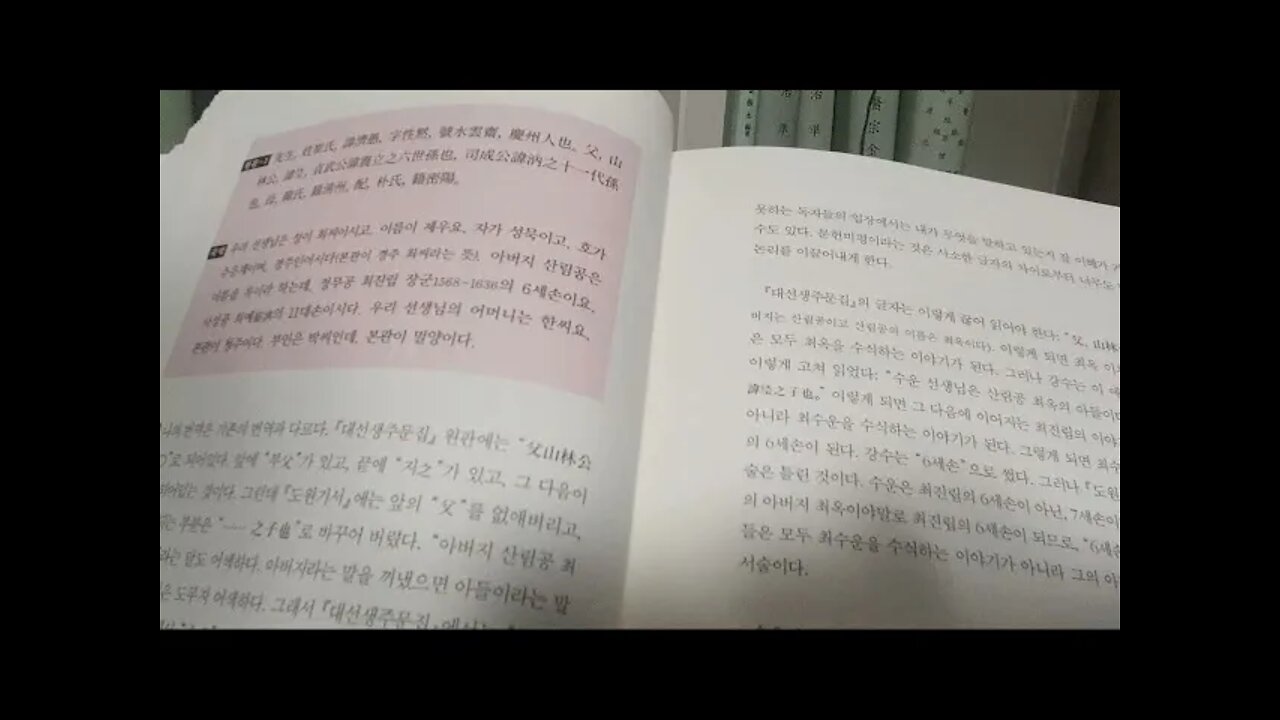 先生, 姓崔氏, 諱濟愚, 字性黙, 號水雲齋, 慶州人也。父, 山
林公, 諱𨩌, 貞武公諱震立之六世孫也, 司成公諱汭之十一代孫
也, 母, 韓氏, 籍淸州, 配, 朴氏, 籍密陽。
우리 선생님은 성이 최씨이시고, 이름이 제우요, 자가 성묵이고, 호가
수운재이며, 경주인이시다(본관이 경주 최씨라는 뜻). 아버지 산림공은
이름을 옥이라 하는데, 정무공 최진립 장군1568~1636의 6세손이요,
사성공 최예의 11대손이시다. 우리 선생님의 어머니는 한씨요,
본관이 청주이다. 부인은 박씨인데, 본관이 밀양이다.
나의 번역은 기존의 번역과 다르다. 『대선생주문집』 원판에는 "父山林公
"로 되어있다. 앞에 "부父"가 있고, 끝에 "지之"가 있고, 그 다음이
되어있는 것이다. 그런데 『도원기서』에는 앞의 "父"를 없애버리고,
부분은 "…… 之子也"로 바꾸어 버렸다. "아버지 산림공 최
라는 말도 어색하다. 아버지라는 말을 꺼냈으면 아들이라는 말
은 도무지 어색하다. 그래서 『대선생주문집』에서는
못하는 독자들의 입장에서는 내가 무엇을 말하고 있는지 잘 이해가
수도 있다. 문헌비평이라는 것은 사소한 글자의 차이로부터 너무도
논리를 이끌어내게 한다.
『대선생주문집』의 글자는 이렇게 끊어 읽어야 한다: "父, 山林
버지는 산림공이고 산림공의 이름은 최옥이다). 이렇게 되면 최옥 이
은 모두 최옥을 수식하는 이야기가 된다. 그러나 강수는 이
이렇게 고쳐 읽었다: "수운 선생님은 산림공 최옥의 아들이다
之子也。" 이렇게 되면 그 다음에 이어지는 최진립의 이야
아니라 최수운을 수식하는 이야기가 된다. 그렇게 되면 최수
의 6세손이 된다. 강수는 "6세손"으로 썼다. 그러나 『도원
술은 틀린 것이다. 수운은 최진립의 6세손이 아닌, 7세손이
의 아버지 최옥이야말로 최진립의 6세손이 되므로, "6세손
들은 모두 최수운을 수식하는 이야기가 아니라 그의 아
서술이다.